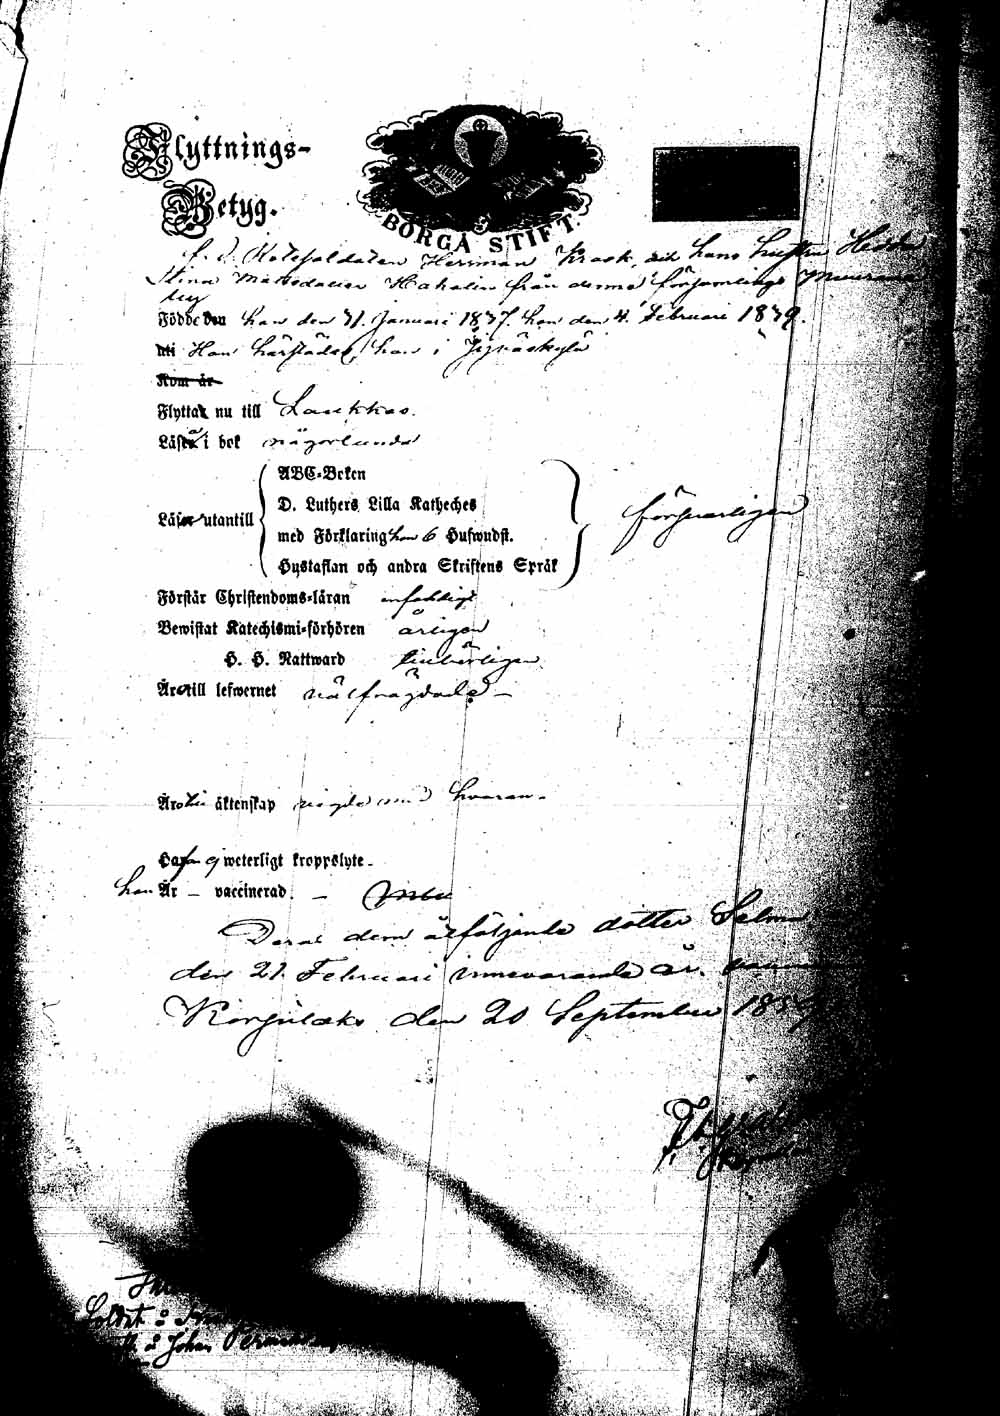 Flyttnings-
Betyg.
BORGÅ STIFT.
f. d. Rotesoldaten Herrman Krook, och hans hustru Hedda
Stina Mattsdotter Hakalin från denna församlings Muurame
by
Födde den han den 31. Januari 1837. hon den 4. Februari 1839.
uti Han härstädes, hon i Jyväskylä
Kom år
Flytta nu till Laukkas.
Läsa i bok någorlunda
ABC-Boken
D. Luthers Lilla Katheches
Läsa utantill med Förklaring hon 6 Hufwudst. försvarligen
Hustaflan och andra Skriftens Språk
Förstår Christendoms-läran enfaldigt
Bewistat Katechismi-förhören årligen
H. H. Nattward tillbörligen
Äro till lefwernet välfrägdade
Äro till äktenskap vigde med hvaran-
Hafva ej weterligt kroppslyte
hon Är – vaccinerad. –
Deras dem åtföljande dotter Selma
den 21. Februari innevarande år.
Korpilaks den 20 September
Soldat
Johan